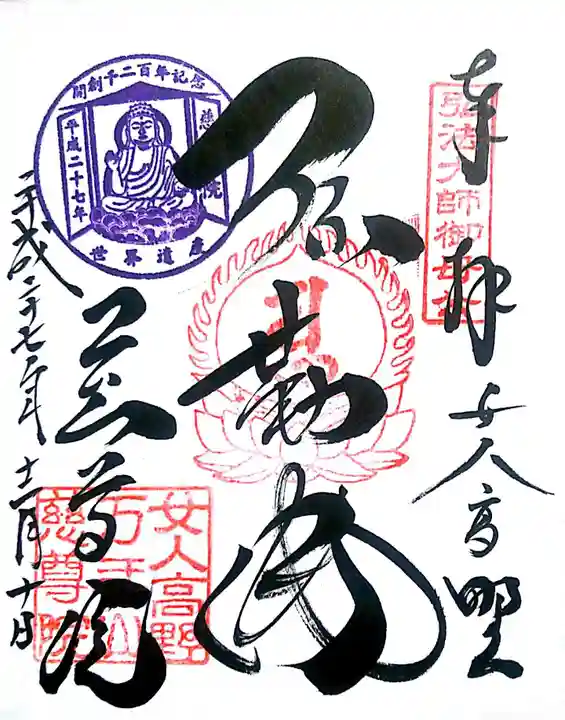 奉拝 女人高野
弘法大師御母公
弥勒尊
開創千二百年記念
慈尊院
平成二十七年
世界遺産
女人高野
万年山
慈尊院
慈尊院
平成二十七年十一月十日